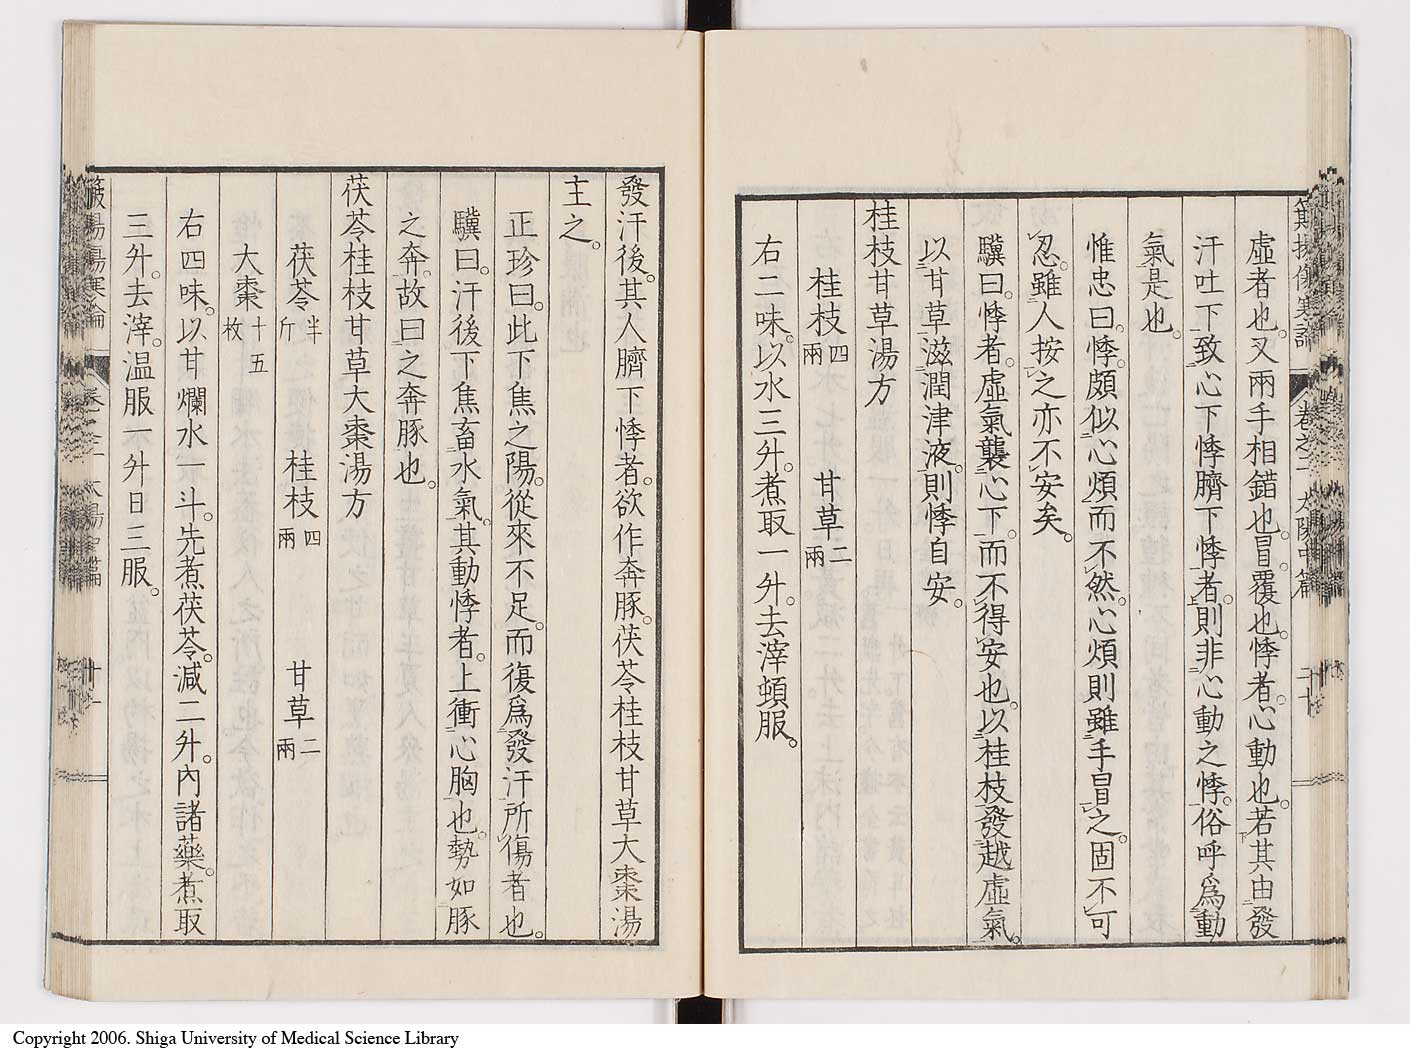 虛者也。又兩手相錯也。冒。覆也。悸者。心動也。若其由發
汗吐下致心下悸臍下悸者。則非心動之悸。俗呼爲動
氣是也。
惟忠曰。悸。頗似心煩而不然。心煩則雖手冒之。固不可
忍。雖人按之亦不安矣。
驥曰。悸者。虛氣襲心下。而不得安也。以桂枝發越虛氣。
以甘草滋潤津液。則悸自安。
桂枝甘草湯方
桂枝四兩 甘草二兩
右二味。以水三升。煮取一升。去滓頓服。
發汗後。其人臍下悸者。欲作奔豚。茯苓桂枝甘草大棗湯
主之。
正珍曰。此下焦之陽。從來不足。而復爲發汗所傷者也。
驥曰。汗後下焦畜水氣。其動悸者。上衝心胸也。勢如豚
之奔。故曰之奔豚也。
茯苓桂枝甘草大棗湯方
茯苓半斤 桂枝四兩 甘草二兩
大棗十五枚
右四味。以甘爛水一斗。先煮茯苓。減二升。內諸藥。煮取
三升。去滓。溫服一升日三服。
Copyright 2006. Shiga University of Medical Science Library